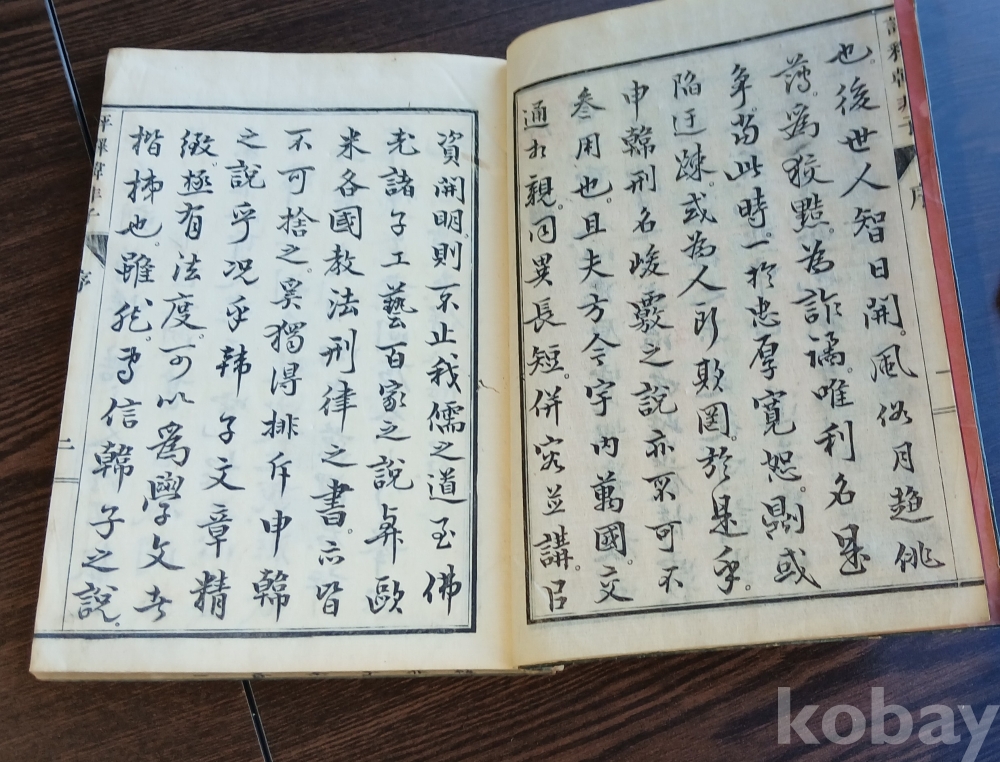 評釋韓非子 序
也。後世人智日開。風俗月趨佻
薄。爲狡黠。爲詐譎。唯利名是
爭。當此時。一於忠厚寬恕。則或
陷迂疎或為人所欺罔。於是乎。
申韓刑名峻覈之說亦不可不
叅用也。且夫方今宇內萬國。交
通相親。同異長短。併容並講。以
資開明。則不止我儒之道至佛
老諸子工藝百家之說與歐
米各國教法刑律之書。亦皆
不可捨之。奚獨得排斥申韓
之說乎况乎韓子文章精
緻。極有法度。可以爲學文者
楷梯也。雖然。専信韓子之說。
評釋韓非子 序 二
kobay